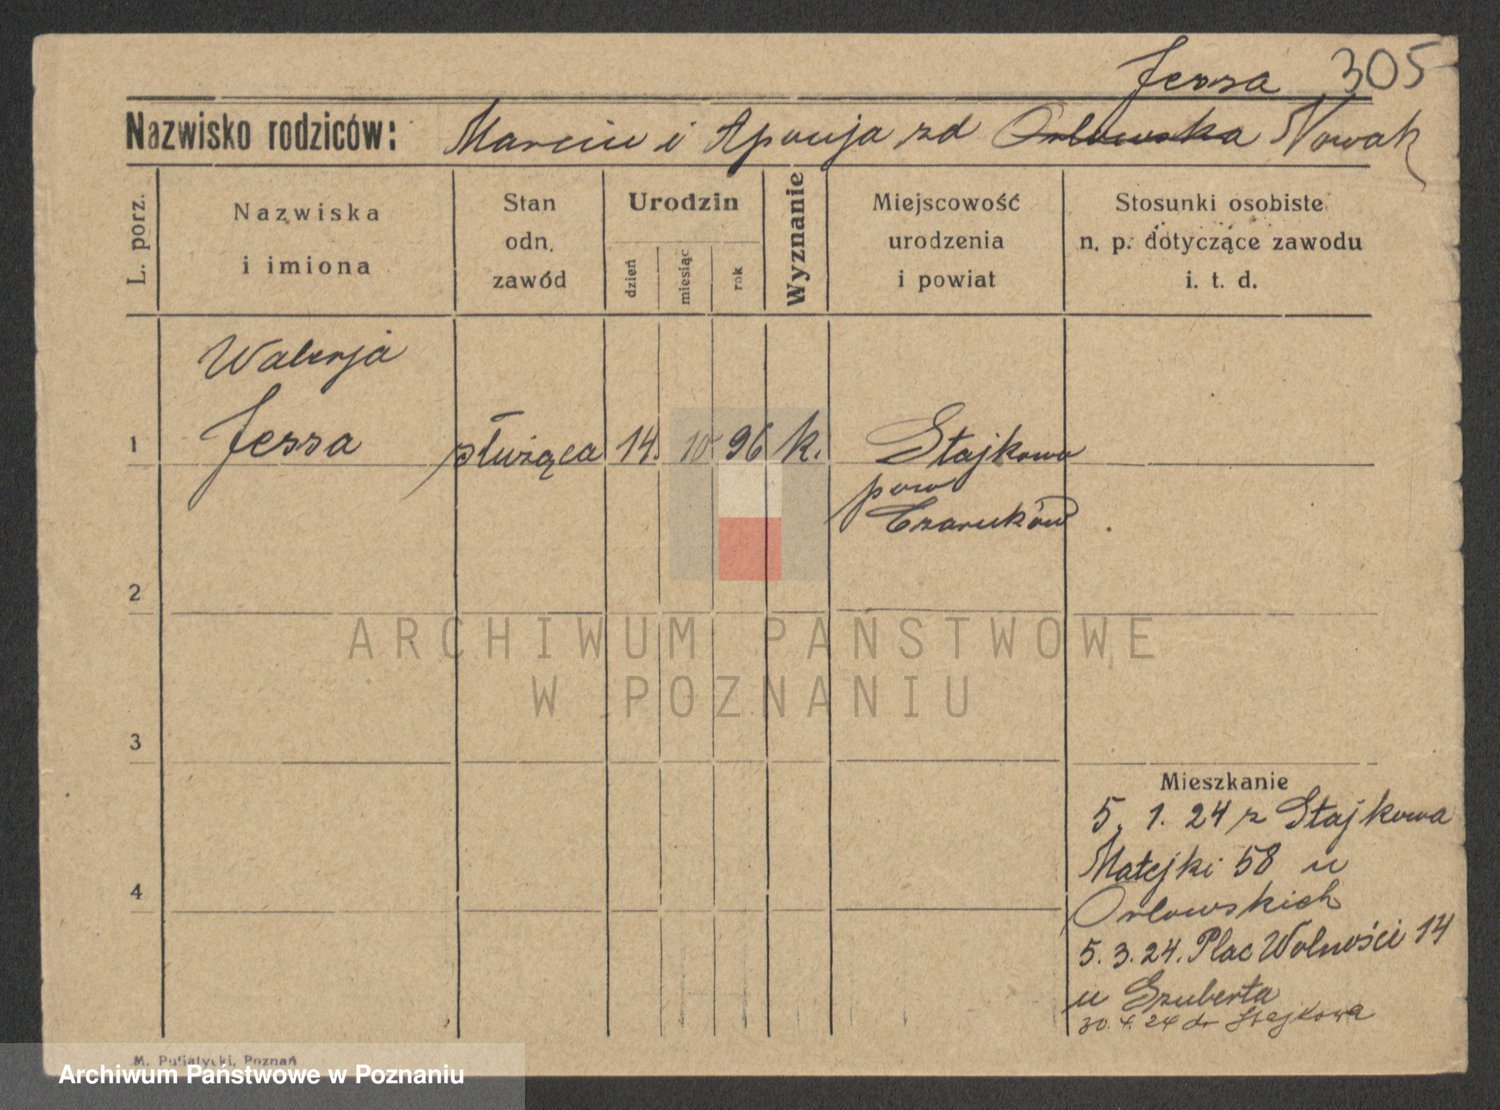 Jessa 305
Nazwisko rodziców: Marcin i Aponja zd Orlowska Nowak
L. porz.
Nazwiska
i imiona
Stan
odn.
zawód
Urodzin
dzień
miesiąc
rok
Wyznanie
Miejscowość
urodzenia
i powiat
Stosunki osobiste
n. p. dotyczące zawodu
i. t. d.
Walerja
1 Jessa służąca 14. 10 96 k. Stajkowo
pow
Czarnków
2
3
4
Mieszkanie
5. 1. 24 z Stajkowa
Matejki 58 u
Orlowskich
5. 3. 24. Plac Wolności 14
u Szuberta
30. 4. 24 do Stajkowa
M. Putiatycki, Poznań
ARCHIWUM PAŃSTWOWE
W POZNANIU
Archiwum Państwowe w Poznaniu